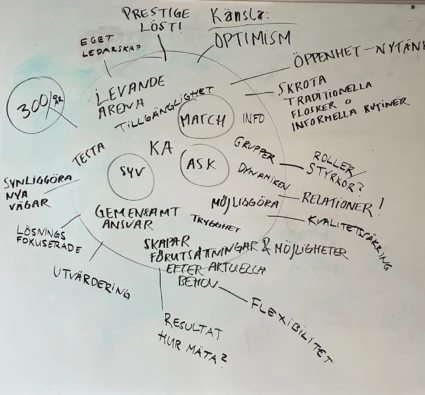 PRESTIGE
LÖST!
Känsla:
OPTIMISM
EGET
LEDARSKAP
ÖPPENHET - NYTÄNK
LEVANDE
ARENA
TILLGÄNGLIGHET
SKROTA
TRADITIONELLA
FLOSKER O
INFORMELLA RUTINER
300/ÅR
MATCH
INFO
TESTA
KA
GRUPPER
DYNAMIKEN
ROLLER/
STYRKOR?
SYV
ASK
RELATIONER!
SYNLIGGÖRA
NYA
VÄGAR
MÖJLIGGÖRA
KVALITETSÄKRING
GEMENSAMT
ANSVAR
TRYGGHET
LÖSNINGS
FOKUSERADE
SKAPAR
FÖRUTSÄTTNINGAR & MÖJLIGHETER
EFTER AKTUELLA
BEHOV
UTVÄRDERING
FLEXIBILITET
RESULTAT
HUR MÄTA?